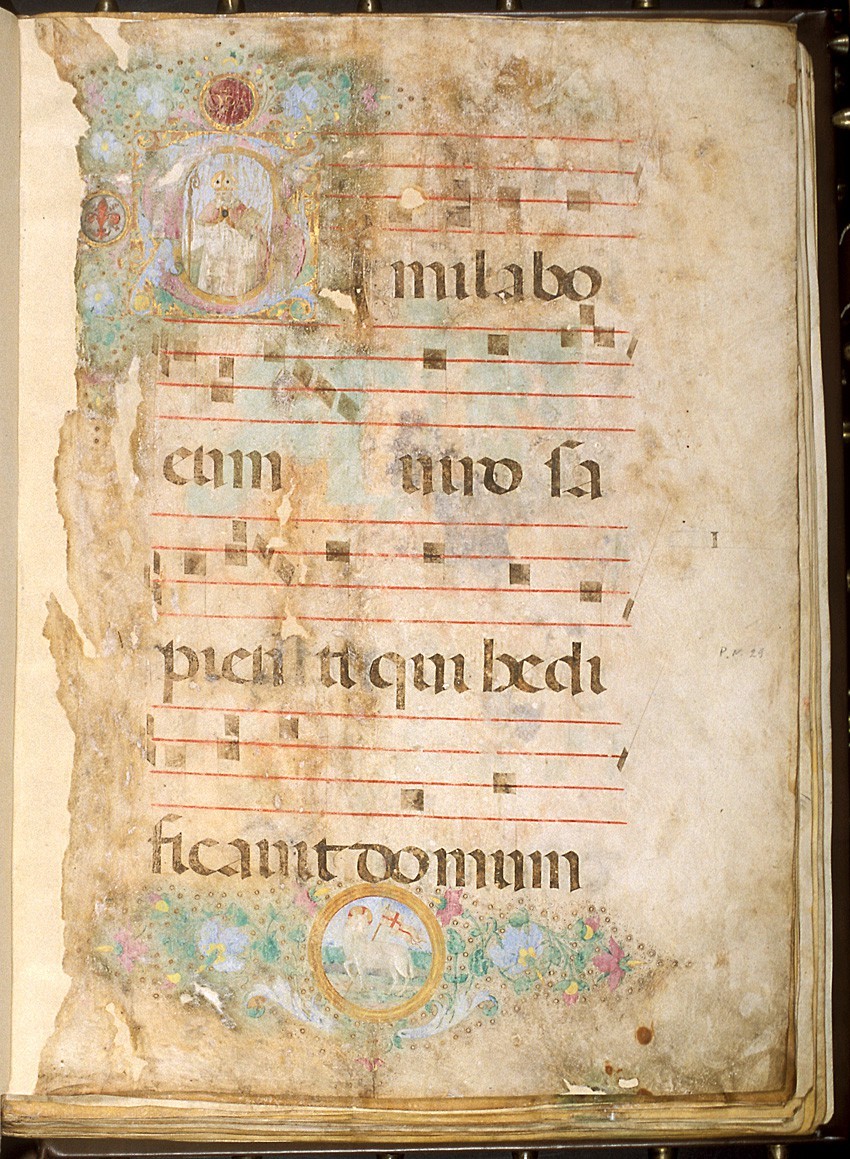 Similabo
eum uiro sa
pien ti qui hedi
ficauit domum
I